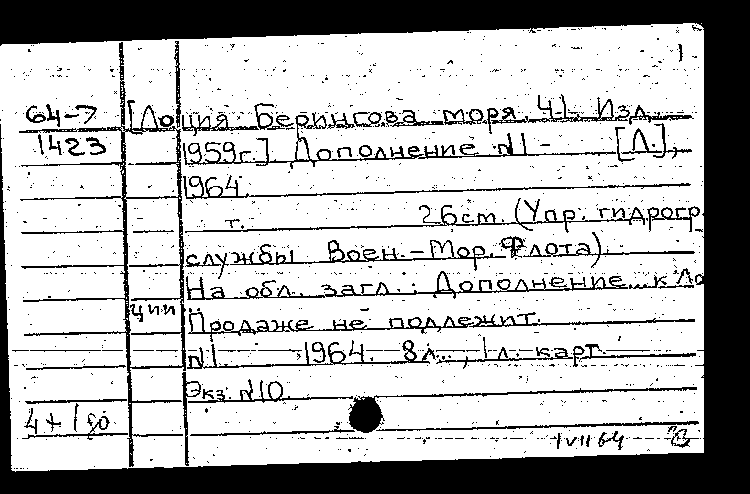 1
64-7 [Лоция Берингова моря. Ч.1. Изд.
1423 1959г.] Дополнение №1 - [Л.],
1964.
т. 26см. (Упр. гидрогр.
службы Воен.-Мор. Флота).
На обл. загл.: Дополнение к Ло
ции
Продаже не подлежит.
№1. 1964. 8л., 1л. карт.
Экз. №10.
4+1
1 VII 64